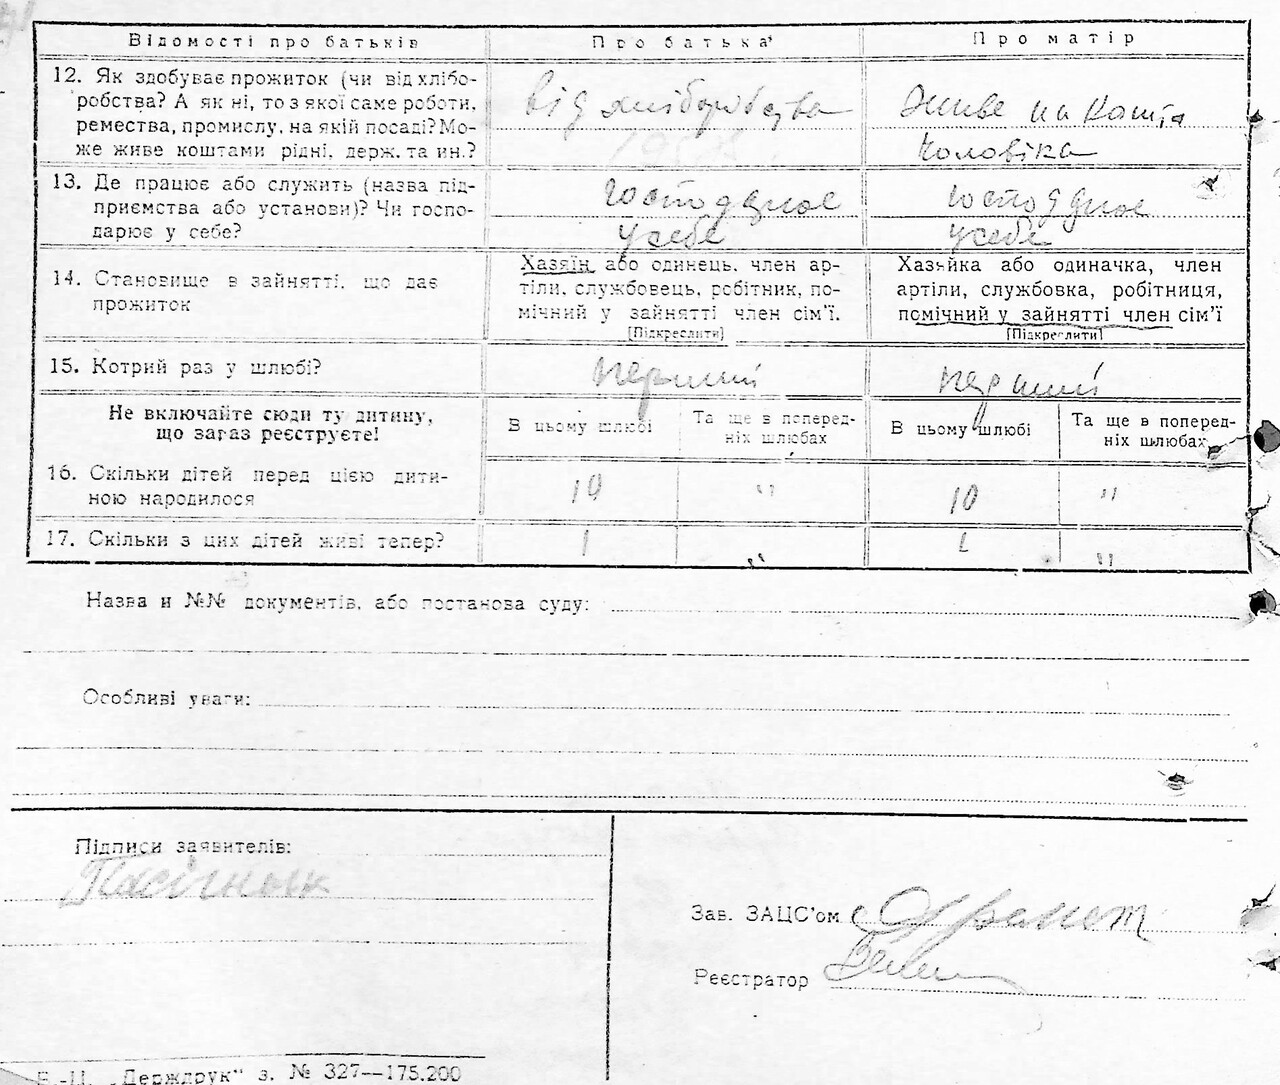 Відомості про батьків Про батька Про матір
12. Як здобуває прожиток (чи від хлібо- від хліборобства Живе на кошти
робства? А як ні, то з якої саме роботи, чоловіка
ремества, промислу, на якій посаді? Мо-
же живе коштами рідні, держ. та ин.?
13. Де працює або служить (назва під- господарює господарює
приємства або установи)? Чи госпо- у себе у себе
дарює у себе?
14. Становище в зайнятті, що дає
прожиток
Хазяїн або одинець, член ар-
тілі, службовець, робітник, по-
мічний у зайнятті член сім'ї.
[Підкреслити]
Хазяйка або одиначка, член
артілі, службовка, робітниця,
помічний у зайнятті член сім'ї
[Підкреслити]
15. Котрий раз у шлюбі? перший перший
Не включайте сюди ту дитину,
що зараз реєструєте!
В цьому шлюбі Та ще в поперед-
ніх шлюбах
В цьому шлюбі Та ще в поперед-
ніх шлюбах
16. Скільки дітей перед цією дити-
ною народилося 10 " 10 "
17. Скільки з цих дітей живі тепер? 1 " 1 "
Назва и №№ документів, або постанова суду:
Особливі уваги:
Підписи заявителів:
Пасічнык
Зав. ЗАЦС'ом
Реєстратор
"Держдрук" з. № 327—175.200